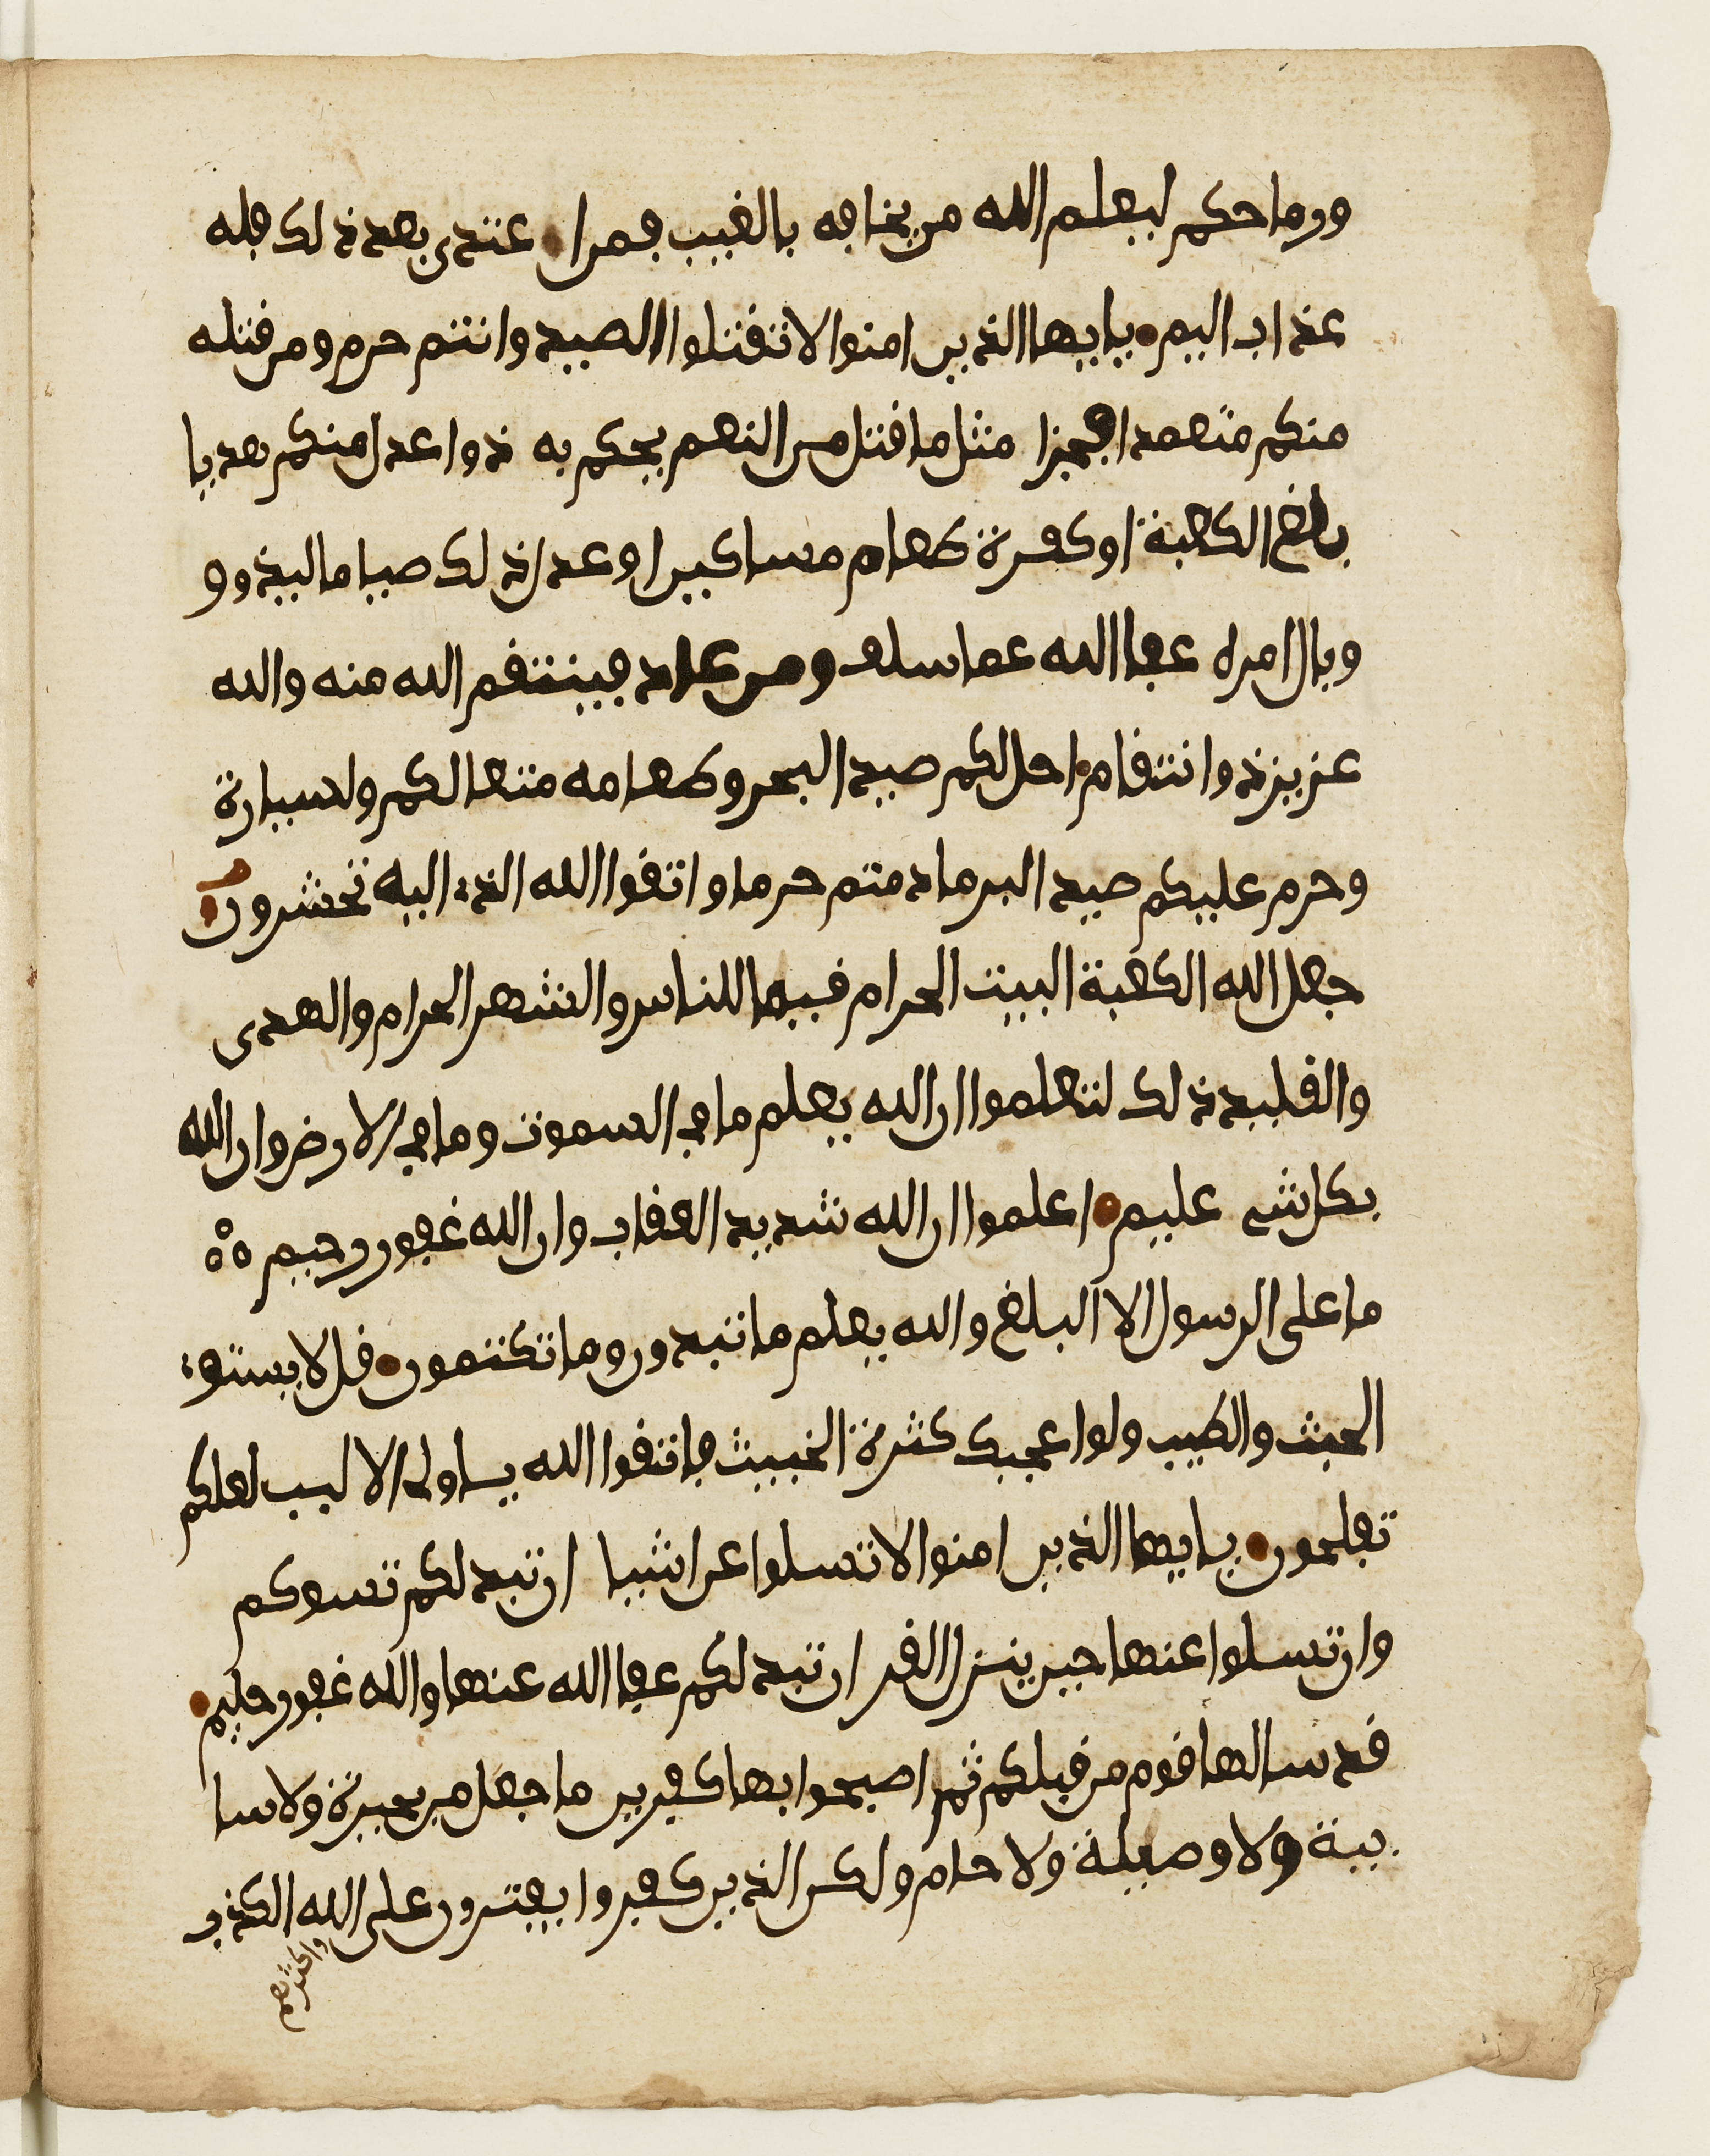 ورماحكم ليعلم الله من يخافه بالغيب فمن اعتدى بعد ذلك فله
عذاب اليم يايها الذين امنوا لا تقتلوا الصيد وانتم حرم ومن قتله
منكم متعمدا فجزا مثل ما قتل من النعم يحكم به ذوا عدل منكم هديا
بلغ الكعبة او كفرة طعام مساكين او عدل ذلك صياما ليذوو
وبال امره عفا الله عما سلف ومن عاد فينتقم الله منه والله
عزيز ذوانتقام احل لكم صيد البحر وطعامه متعا لكم ولسيارة
وحرم عليكم صيد البر ما دمتم حرما واتقوا الله الذي اليه تحشرون
جعل الله الكعبة البيت الحرام قيما للناس والشهر الحرام والهدى
والقليد ذلك لتعلموا ان الله يعلم ما في السموت وما في الارض وان الله
بكل شي عليم اعلموا ان الله شديد العقاب وان الله غفور رحيم
ما على الرسول الا البلغ والله يعلم ما تبدون وما تكتمون قل لا يستوي
الخبيث والطيب ولو اعجبك كثرة الخبيث فاتقوا الله ياولي الالبب لعلكم
تفلحون يايها الذين امنوا لا تسلوا عن اشيا ان تبد لكم تسوكم
وان تسلوا عنها حين ينزل القر ان تبد لكم عفا الله عنها والله غفور حليم
قد سالها قوم من قبلكم ثم اصبحوا بها كفرين ما جعل من بحيرة ولا سا
يبة ولا وصيلة ولا حام ولكن الذين كفروا يفترون على الله الكذب
واكثرهم